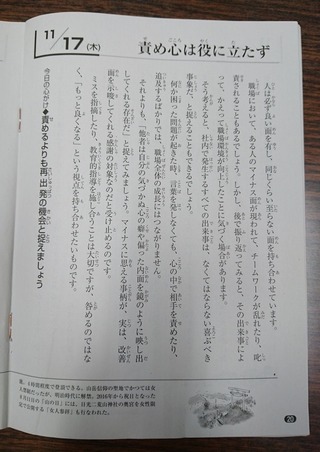 11/17(木)
責め心は役に立たず
人は必ず良い面を有し、同じくらい至らない面を持ち合わせています。
職場において、ある人のマイナス面が現われて、チームワークが乱れたり、叱
責されることもあるでしょう。しかし、後で振り返ってみると、その出来事によ
って、かえって職場環境が向上したことに気づく場合があります。
そう考えると、社内で発生するすべての出来事は、なくてはならない喜ぶべき
事象だ、と捉えることもできるでしょう。
何か困った問題が起きた時、言葉を発しなくても、心の中で相手を責めたり、
追及するばかりでは、職場全体の成長にはつながりません。
それよりも、「他者は自分の気づかぬ心の癖や偏った内面を鏡のように映し出
してくれる存在だ」と捉えてみましょう。マイナスに思える事柄が、実は、改善
面を示唆してくれる感謝の対象なのだと受け止めるのです。
ミスを指摘したり、教育的指導を施し合うことは大切ですが、咎めるのではな
く、「もっと良くなる」という視点を持ち合わせたいものです。
今日の心がけ◆責めるよりも再出発の機会と捉えましょう
頼。4時間程度で登頂できる。山岳信仰の聖地でかつては女
人禁制だったが、明治時代に解禁。2016年から祝日となった
8月11日の「山の日」には、日光二荒山神社の奥宮を女性限
定で公開する「女人参拝」も行なわれた。
20